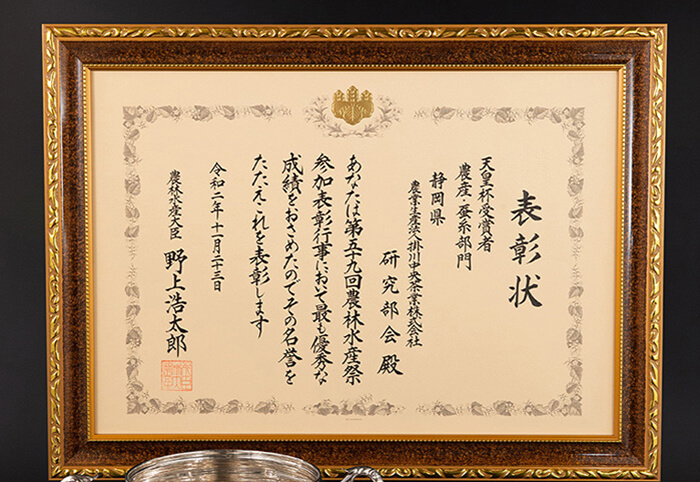 表彰状
天皇杯受賞者
農産・蚕糸部門
静岡県
農業生産法人掛川中央茶業株式会社
研究部会 殿
あなたは第五十九回農林水産祭
参加表彰行事において最も優秀な
成績をおさめたのでその名誉を
たたえこれを表彰します
令和二年十一月二十三日
農林水産大臣 野上浩太郎